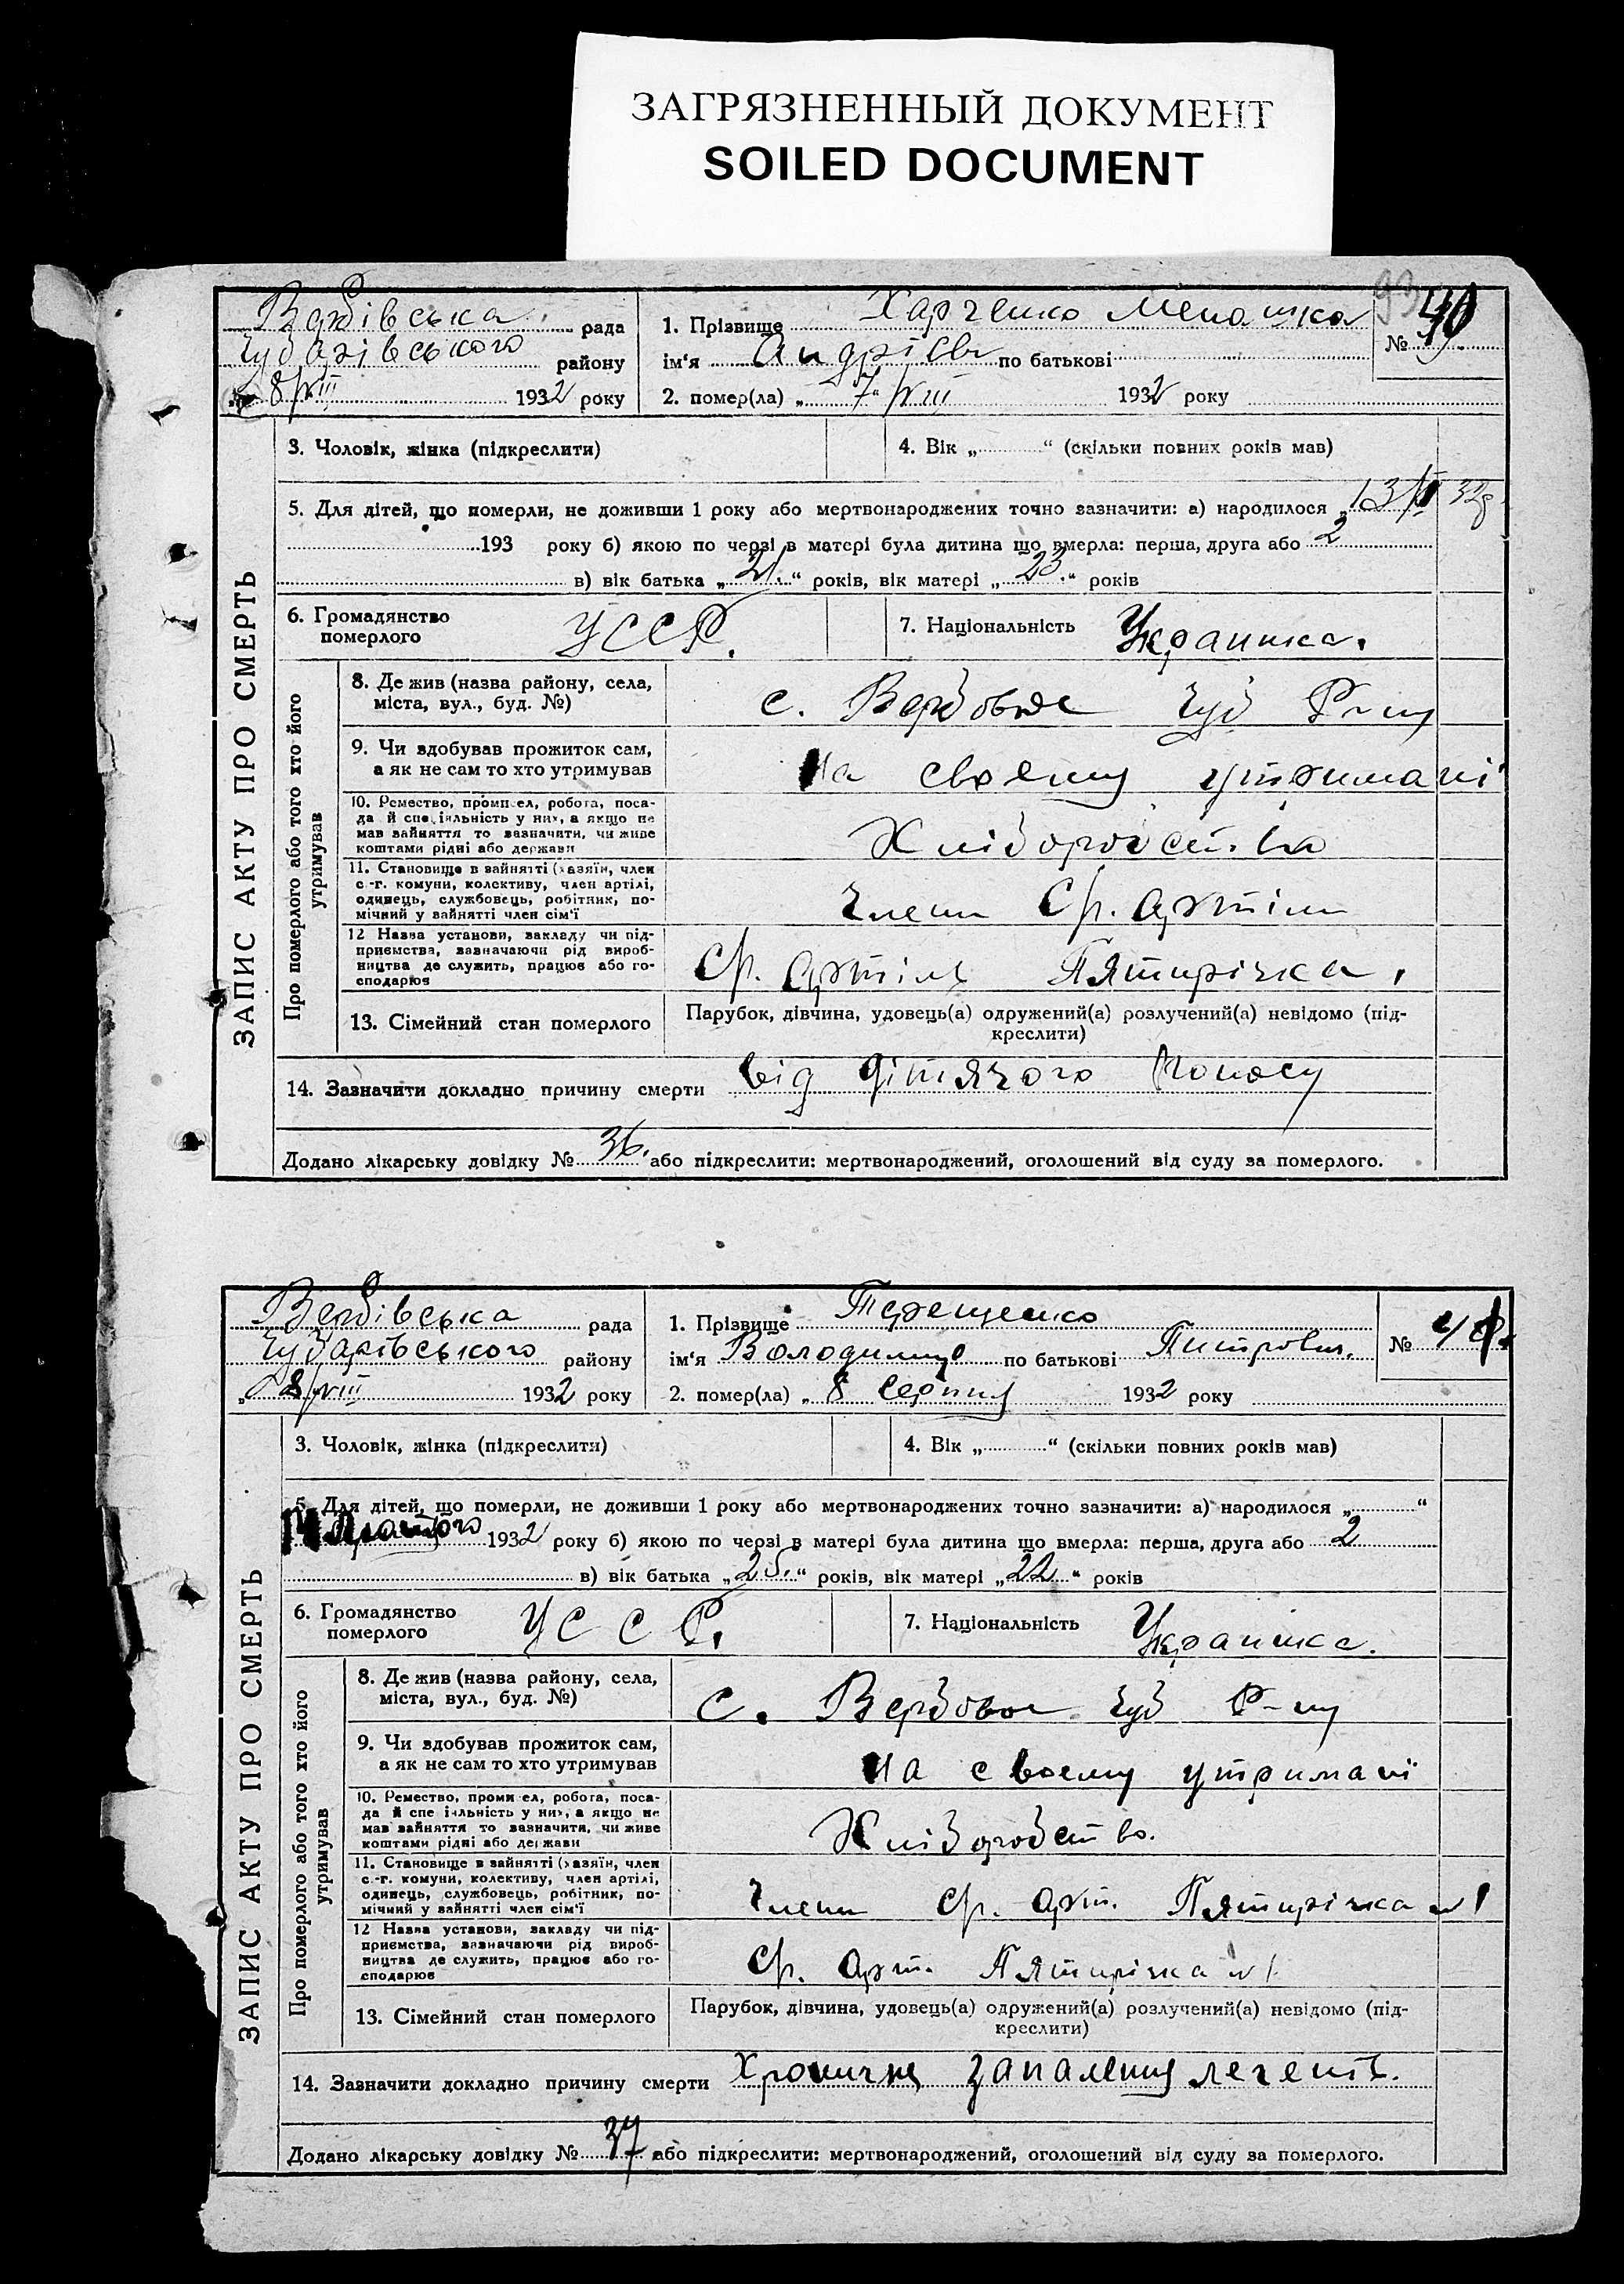 ЗАГРЯЗНЕННЫЙ ДОКУМЕНТ
SOILED DOCUMENT
93
Вербівська рада
Чубарівського району
8/VIII 1932 року
1. Прізвище Харченко
ім'я Андріїв по батькові
2. помер(ла) „ 7 “ VIII 1932 року
№ 40
ЗАПИС АКТУ ПРО СМЕРТЬ
3. Чоловік, жінка (підкреслити)
4. Вік „ “ (скільки повних років мав)
5. Для дітей, що померли, не доживши 1 року або мертвонароджених точно зазначити: а) народилося „ 13/ 32р
193 року б) якою по черзі в матері була дитина що вмерла: перша, друга або 2
в) вік батька „ 21. “ років, вік матері „ 23. “ років
6. Громадянство
померлого
УССР.
7. Національність Украинка.
Про померлого або того хто його
утримував
8. Де жив (назва району, села,
міста, вул., буд. №)
с. Вербовое Чуб Р-ну
9. Чи здобував прожиток сам,
а як не сам то хто утримував
На своєму утримані
10. Ремество, промисел, робота, поса-
да й спеціяльність у них, а якщо не
мав зайняття то зазначити, чи живе
коштами рідні або держави
Хліборобства
11. Становище в зайнятті (хазяїн, член
с.-г. комуни, колективу, член артілі,
одинець, службовець, робітник, по-
мічний у зайнятті член сім'ї
Член Ср. артіли
12 Назва установи, закладу чи під-
приємства, зазначаючи рід вироб-
ництва де служить, працює або го-
сподарює
Ср. артіль Пятирічка.
13. Сімейний стан померлого
Парубок, дівчина, удовець(а) одружений(а) розлучений(а) невідомо (під-
креслити)
14. Зазначити докладно причину смерти від дітячого поносу
Додано лікарську довідку № 36. або підкреслити: мертвонароджений, оголошений від суду за померлого.
Вербівська рада
Чубарівського району
„ 8/VIII 1932 року
1. Прізвище Терещенко
ім'я Володимир по батькові Питрович.
2. помер(ла) „ 8 серпня 1932 року
№ 41
ЗАПИС АКТУ ПРО СМЕРТЬ
3. Чоловік, жінка (підкреслити)
4. Вік „ “ (скільки повних років мав)
5. Для дітей, що померли, не доживши 1 року або мертвонароджених точно зазначити: а) народилося „ “
1932 року б) якою по черзі в матері була дитина що вмерла: перша, друга або 2
в) вік батька „ 25. “ років, вік матері „ 22 “ років
6. Громадянство
померлого
УССР.
7. Національність Украинка.
Про померлого або того хто його
утримував
8. Де жив (назва району, села,
міста, вул., буд. №)
с. Вербовое Чуб Р-ну
9. Чи здобував прожиток сам,
а як не сам то хто утримував
На своему утримані
10. Ремество, промисел, робота, поса-
да й спеціяльність у них, а якщо не
мав зайняття то зазначити, чи живе
коштами рідні або держави
Хліборобство.
11. Становище в зайнятті (хазяїн, член
с.-г. комуни, колективу, член артілі,
одинець, службовець, робітник, по-
мічний у зайнятті член сім'ї
Член Ср. арт. Пятирічка №1
12 Назва установи, закладу чи під-
приємства, зазначаючи рід вироб-
ництва де служить, працює або го-
сподарює
Ср. арт. Пятирічка №1
13. Сімейний стан померлого
Парубок, дівчина, удовець(а) одружений(а) розлучений(а) невідомо (під-
креслити)
14. Зазначити докладно причину смерти Хронична запалення легенів.
Додано лікарську довідку № 37 або підкреслити: мертвонароджений, оголошений від суду за померлого.